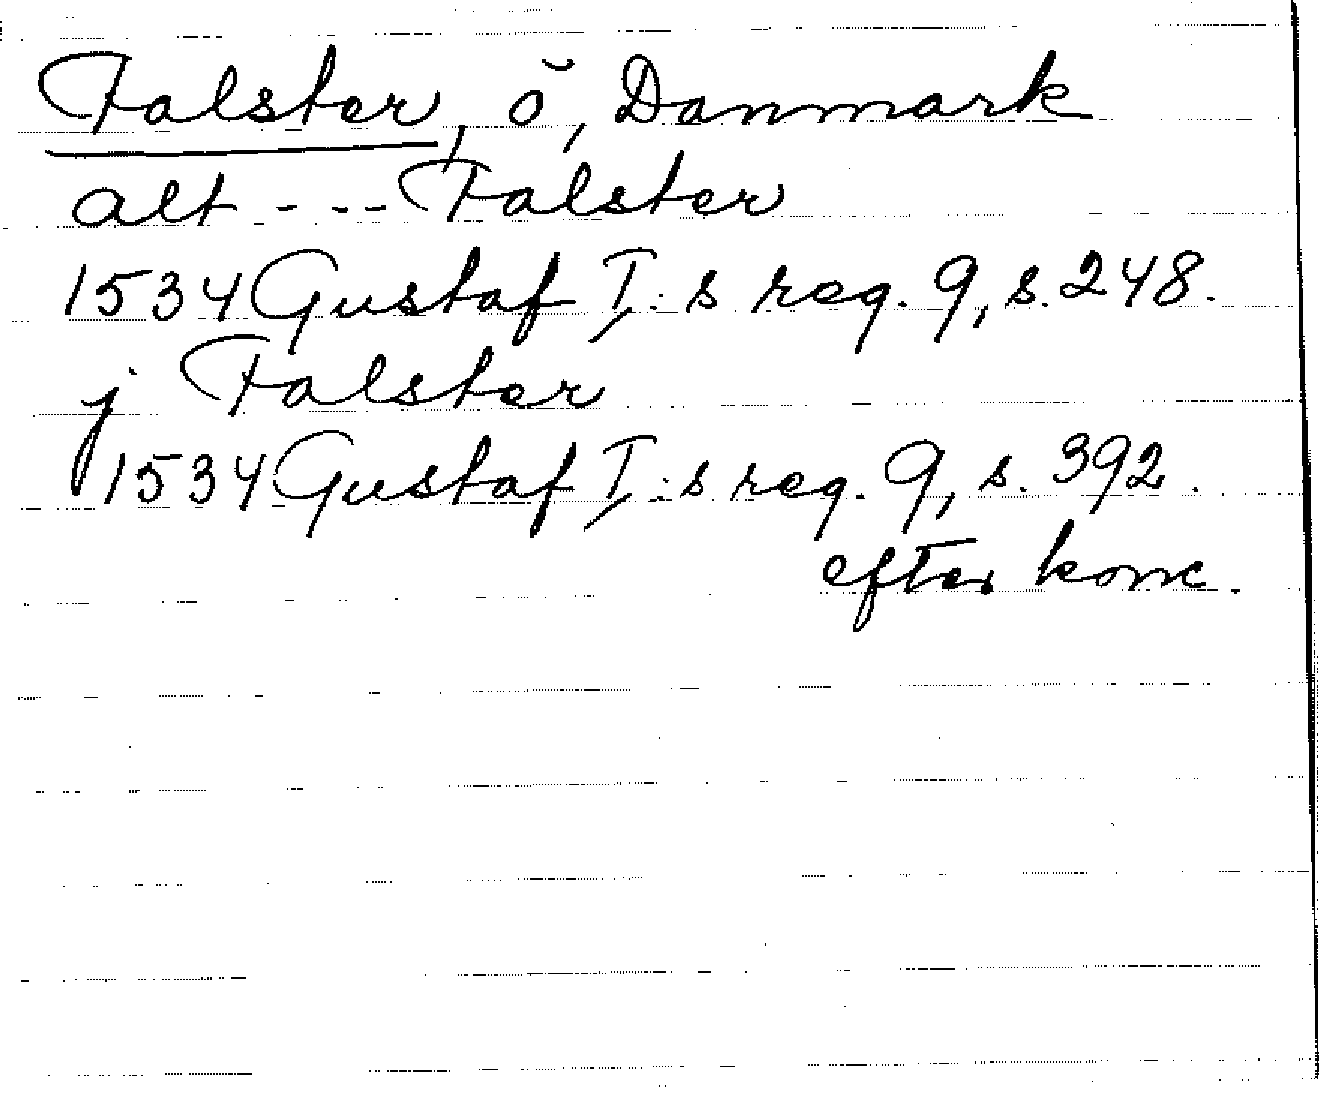 Falster, ö, Danmark
alt - - - Falster
1534 Gustaf I:s reg. 9, s. 248.
j Falster
1534 Gustaf I:s reg. 9, s. 392.
efter konc.